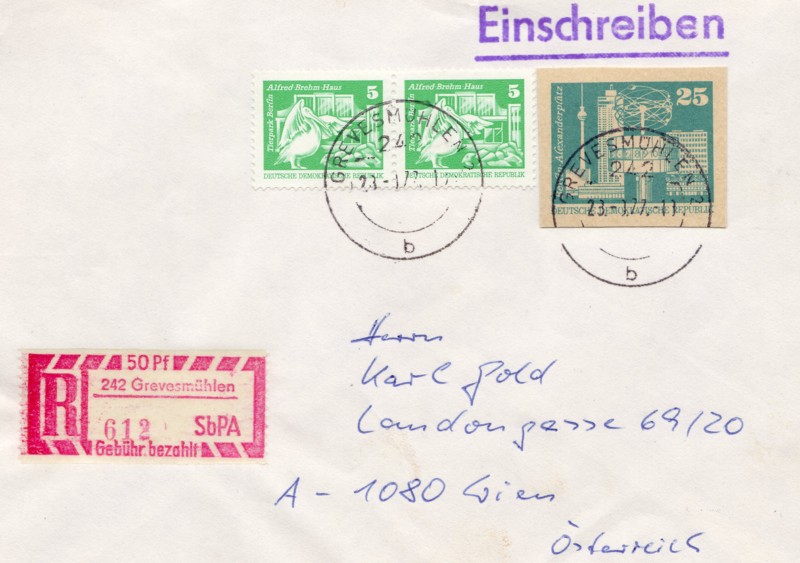 Einschreiben
Alfred Brehm Haus 5
Tierpark Berlin
DEUTSCHE DEMOKRATISCHE REPUBLIK
Alfred Brehm Haus 5
Tierpark Berlin
DEUTSCHE DEMOKRATISCHE REPUBLIK
25
Alexanderplatz
DEUTSCHE DEMOKRATISCHE REPUBLIK
GREVESMÜHLEN
242
b
GREVESMÜHLEN 2
242
b
50 Pf
242 Grevesmühlen
R
612 SbPA
Gebühr bezahlt
Herrn
Karl Gold
Landongasse 69/20
A - 1080 Wien
Österreich